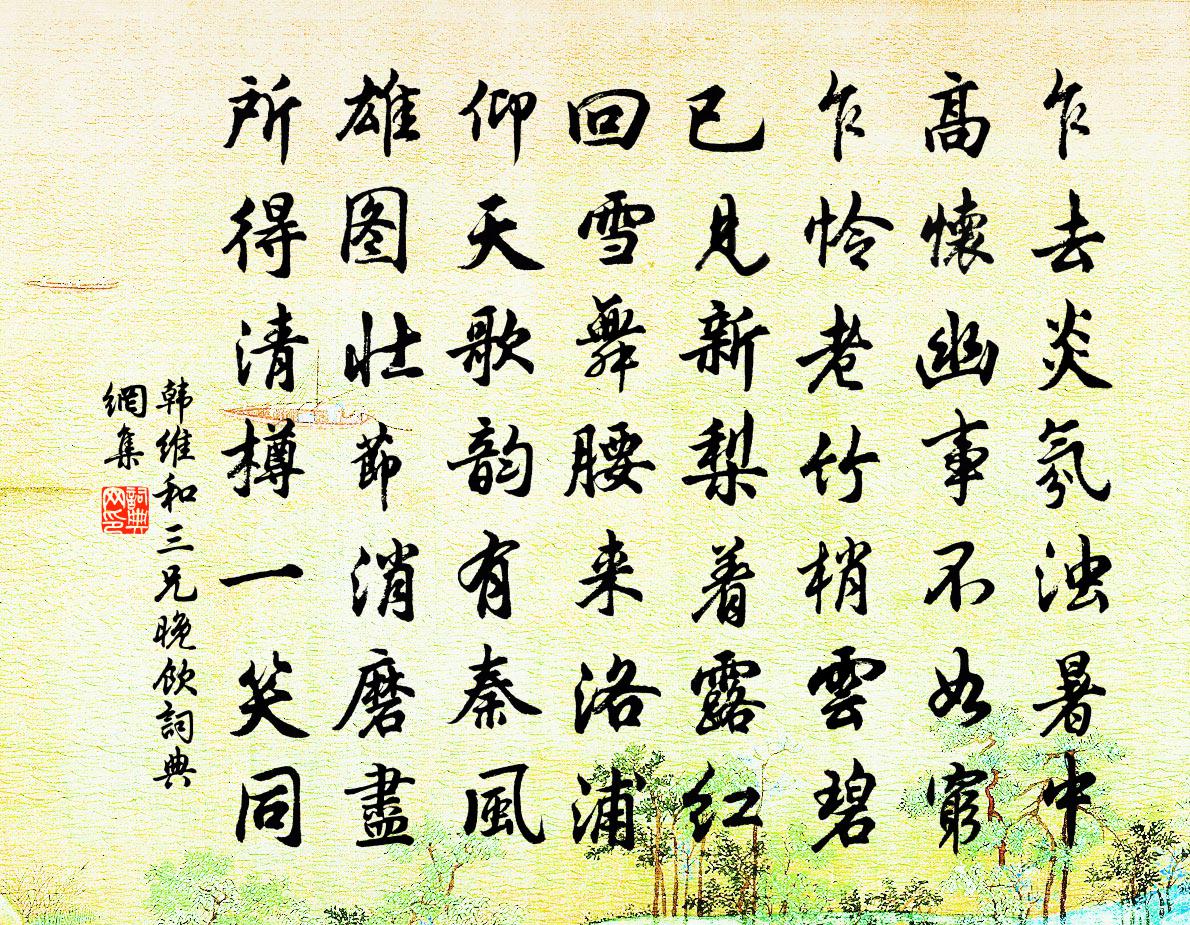 乍去炎氛浊暑中
高懷幽事不如窮
乍怜老竹梢雲碧
已見新梨着露红
回雪舞腰来洛浦
仰天歌韵有秦風
雄图壮節消磨盡
所得清樽一笑同
韩维和三兄晚饮詞典
網集
詞典
网印